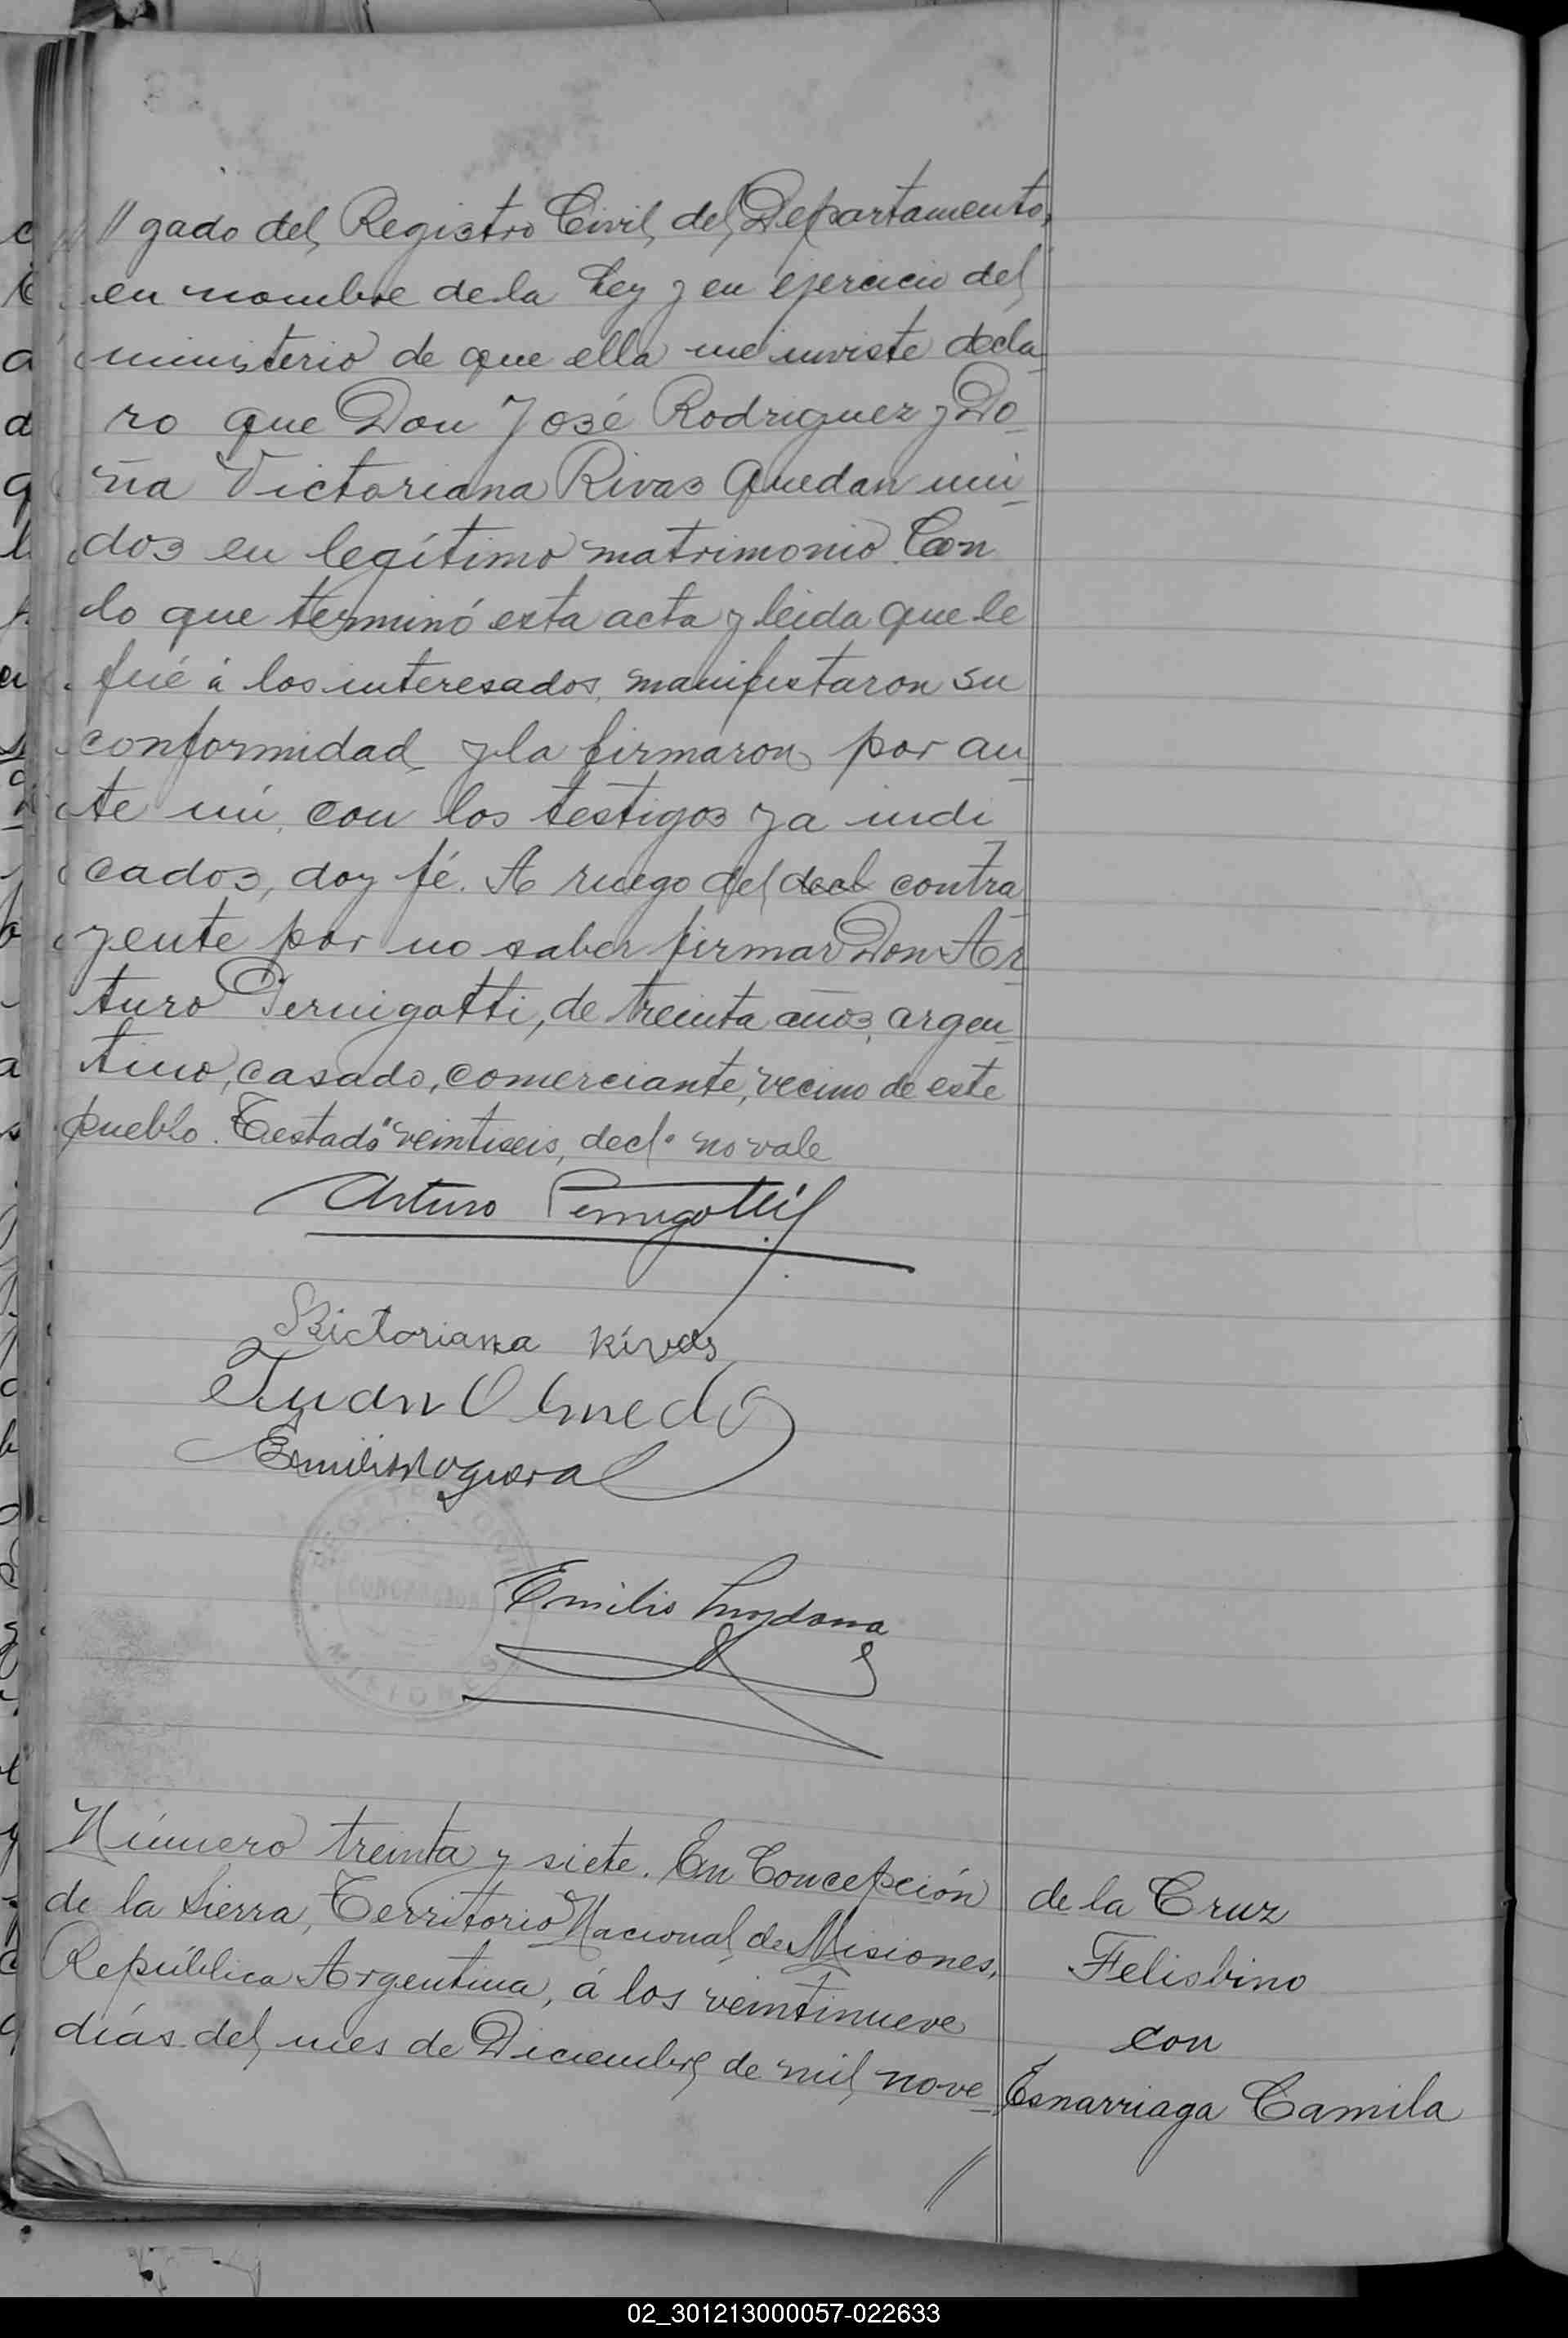 // gado del Registro Civil del Departamento,
en nombre de la Ley y en ejercicio del
ministerio de que ella me inviste decla-
ro que Don José Rodriguez y Do-
ña Victoriana Rivas quedan uni-
dos en legítimo matrimonio. Con
lo que terminó esta acta y leida que le
fué á los interesados, manifestaron su
conformidad y la firmaron por an-
te mí, con los testigos ya indi-
cados, doy fé. A ruego del decl contra-
yente por no saber firmar Don Ar-
turo Pernigotti, de treinta años, argen-
tino, casado, comerciante, vecino de este
pueblo. Testado "veintiseis, decl" no vale
Arturo Pernigotti
Bictoriana Rivas
Juan Olmedo
Emilio Noguera
REGISTRO CIVIL
CONCEPCION
MISIONES
Emilio
Número treinta y siete. En Concepción
de la Sierra, Territorio Nacional de Misiones,
República Argentina, á los veintinueve
días del mes de Diciembre de mil nove-
//
de la Cruz
Felisbino
con
Esnarriaga Camila
02_301213000057-022633